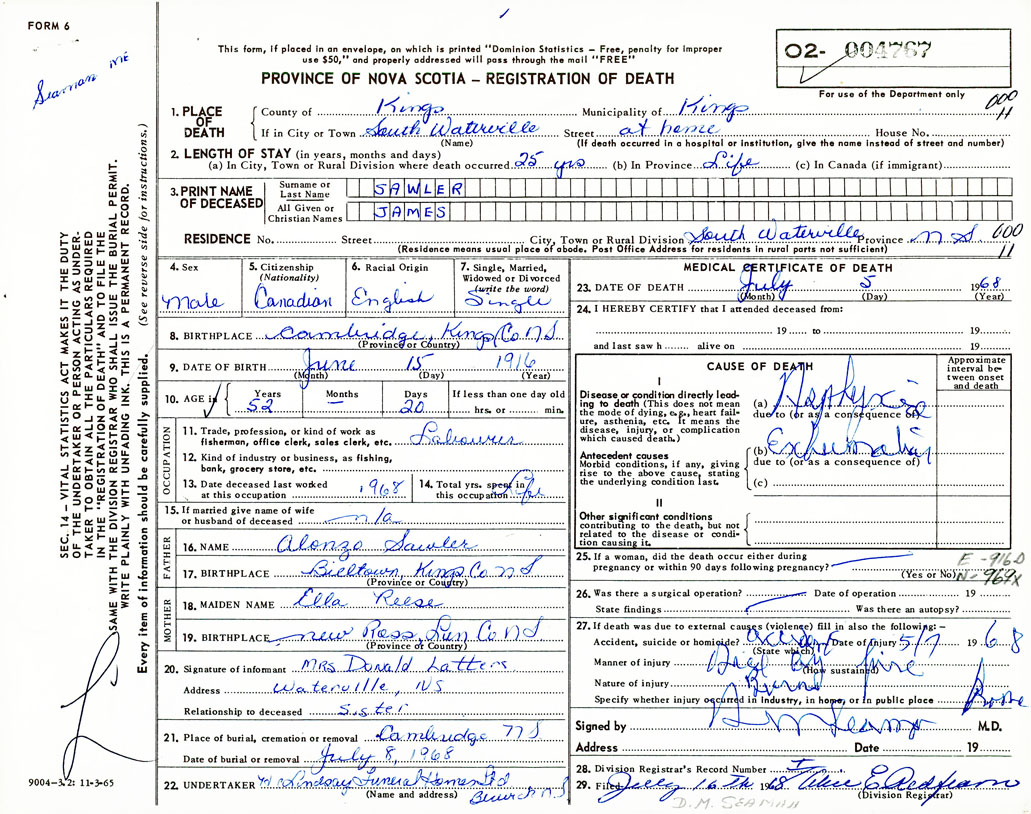 FORM 6
Seaman
This form, if placed in an envelope, on which is printed "Dominion Statistics – Free, penalty for improper
use $50," and properly addressed will pass through the mail "FREE"
PROVINCE OF NOVA SCOTIA – REGISTRATION OF DEATH
O2- 004767
For use of the Department only
000
11
SEC. 14 – VITAL STATISTICS ACT MAKES IT THE DUTY
OF THE UNDERTAKER OR PERSON ACTING AS UNDER-
TAKER TO OBTAIN ALL THE PARTICULARS REQUIRED
IN THE "REGISTRATION OF DEATH" AND TO FILE THE
SAME WITH THE DIVISION REGISTRAR WHO SHALL ISSUE THE BURIAL PERMIT.
WRITE PLAINLY WITH UNFADING INK. THIS IS A PERMANENT RECORD.
Every item of information should be carefully supplied. (See reverse side for instructions.)
1. PLACE OF DEATH
County of Kings Municipality of Kings
If in City or Town South Waterville Street at home House No.
(Name) (If death occurred in a hospital or institution, give the name instead of street and number)
2. LENGTH OF STAY (in years, months and days)
(a) In City, Town or Rural Division where death occurred 25 yrs (b) In Province Life (c) In Canada (if immigrant)
3. PRINT NAME OF DECEASED
Surname or Last Name SAWLER
All Given or Christian Names JAMES
RESIDENCE No. Street City, Town or Rural Division South Waterville Province N S 000
(Residence means usual place of abode. Post Office Address for residents in rural parts not sufficient) 11
4. Sex
Male
5. Citizenship
(Nationality)
Canadian
6. Racial Origin
English
7. Single, Married,
Widowed or Divorced
(write the word)
Single
8. BIRTHPLACE Cambridge, Kings Co N S
(Province or Country)
9. DATE OF BIRTH June 15 1916
(Month) (Day) (Year)
10. AGE in
Years Months Days If less than one day old
52 – 20 hrs. or min.
OCCUPATION
11. Trade, profession, or kind of work as
fisherman, office clerk, sales clerk, etc. Labourer
12. Kind of industry or business, as fishing,
bank, grocery store, etc.
13. Date deceased last worked
at this occupation 1968
14. Total yrs. spent in
this occupation Life
15. If married give name of wife
or husband of deceased n/a
FATHER
16. NAME Alonzo Sawler
17. BIRTHPLACE Kings Co N S
(Province or Country)
MOTHER
18. MAIDEN NAME Ella Reese
19. BIRTHPLACE New Ross, Lun Co N S
(Province or Country)
20. Signature of informant Mrs Donald
Address Waterville, NS
Relationship to deceased Sister
21. Place of burial, cremation or removal Cambridge N S
Date of burial or removal July 8, 1968
22. UNDERTAKER Lindsay Funeral Home Ltd
(Name and address) Berwick N.S
9004-3.2: 11-3-65
MEDICAL CERTIFICATE OF DEATH
23. DATE OF DEATH July 5 1968
(Month) (Day) (Year)
24. I HEREBY CERTIFY that I attended deceased from:
19 to 19
and last saw h alive on 19
CAUSE OF DEATH
Approximate
interval be-
tween onset
and death
I
Disease or condition directly lead-
ing to death (This does not mean
the mode of dying, e.g., heart fail-
ure, asthenia, etc. It means the
disease, injury, or complication
which caused death.)
(a) Asphyxia
due to (or as a consequence of)
Antecedent causes
Morbid conditions, if any, giving
rise to the above cause, stating
the underlying condition last.
(b)
due to (or as a consequence of)
(c)
II
Other significant conditions
contributing to the death, but not
related to the disease or condi-
tion causing it.
25. If a woman, did the death occur either during
pregnancy or within 90 days following pregnancy?
(Yes or No)
E - 916D
N - 969X
26. Was there a surgical operation? Date of operation 19
State findings Was there an autopsy?
27. If death was due to external causes (violence) fill in also the following:–
Accident, suicide or homicide? accident Date of Injury 5/7 1968
(State which)
Manner of injury fire
(How sustained)
Nature of injury Burns
Specify whether injury occurred in industry, in home, or in public place Home
Signed by M.D.
Address Date 19
28. Division Registrar's Record Number
29. Filed July 16th 1968
(Division Registrar)
D.M. SEAMAN